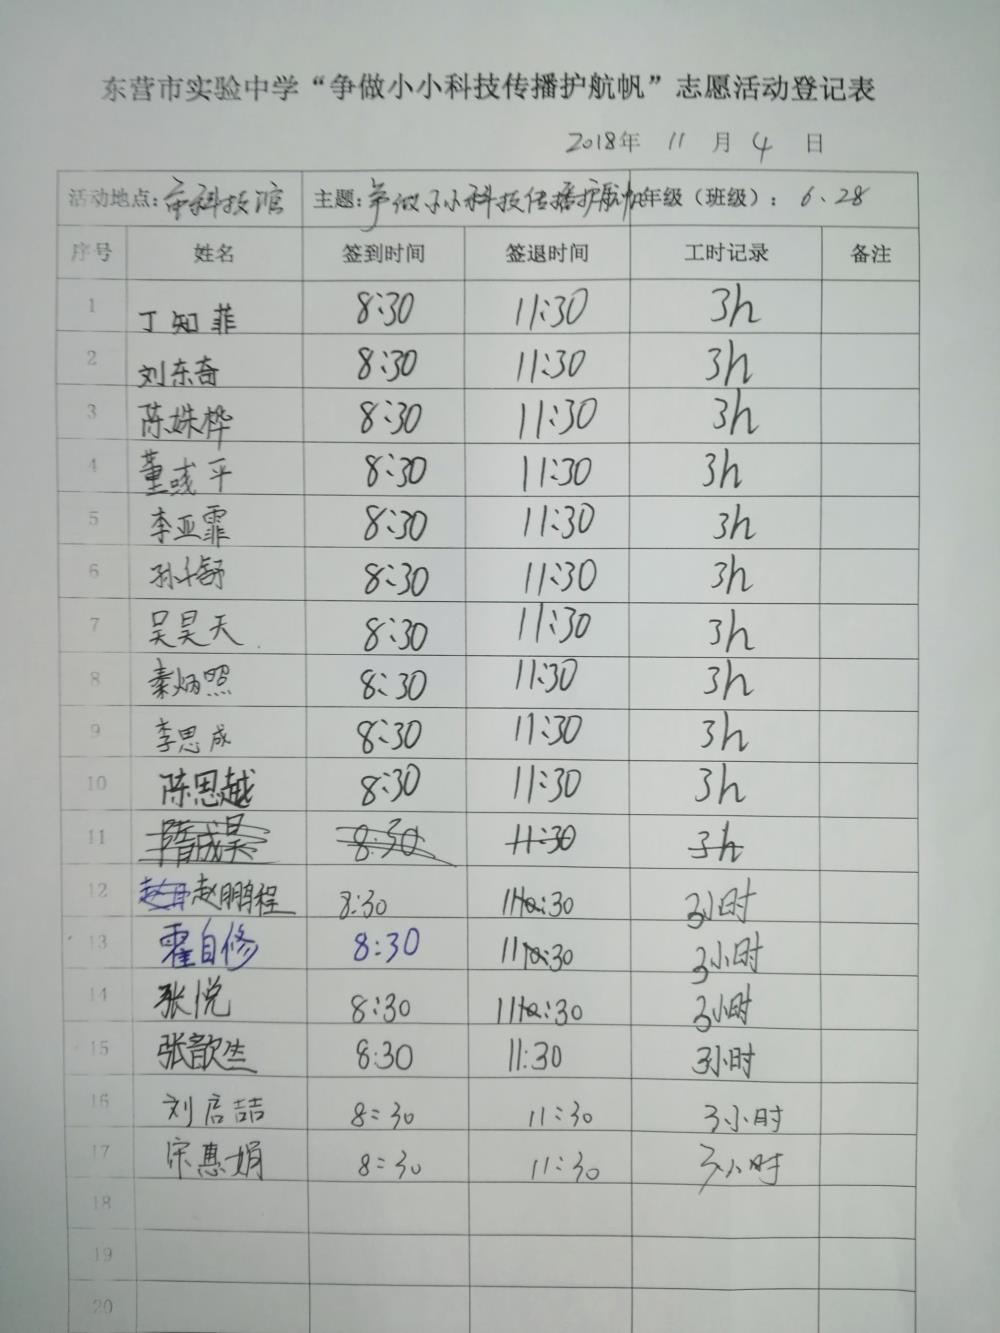 东营市实验中学“争做小小科技传播护航帆”志愿活动登记表
2018年 11 月 4 日
活动地点：市科技馆 主题：争做小小科技传播护航帆 年级（班级）：6.28
序号 姓名 签到时间 签退时间 工时记录 备注
1 丁知菲 8:30 11:30 3h
2 刘东奇 8:30 11:30 3h
3 陈姝桦 8:30 11:30 3h
4 董彧平 8:30 11:30 3h
5 李亚霏 8:30 11:30 3h
6 孙千舒 8:30 11:30 3h
7 吴昊天 8:30 11:30 3h
8 秦炳照 8:30 11:30 3h
9 李思成 8:30 11:30 3h
10 陈思越 8:30 11:30 3h
11 隋成昊 8:30 11:30 3h
12 赵鹏程 8:30 11:30 3小时
13 霍自修 8:30 11:30 3小时
14 张悦 8:30 11:30 3小时
15 张歆生 8:30 11:30 3小时
16 刘启喆 8:30 11:30 3小时
17 宋惠娟 8:30 11:30 3小时
18
19
20